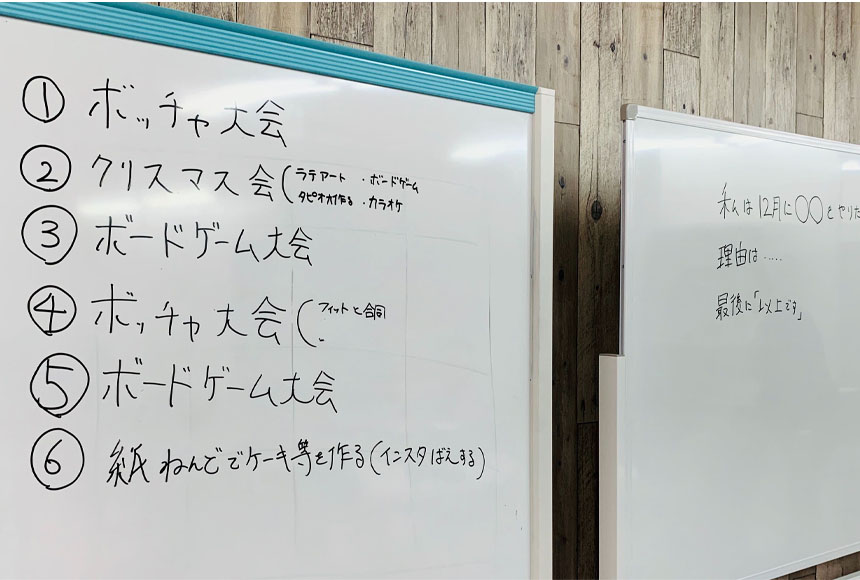 ① ボッチャ大会
② クリスマス会(ラテアート ・ボードゲーム
タピオカ作る ・カラオケ
③ ボードゲーム大会
④ ボッチャ大会(フィットと合同
⑤ ボードゲーム大会
⑥ 紙ねんどでケーキ等を作る(インスタばえする)
私は12月に〇〇をやりた
理由は……
最後に「以上です」